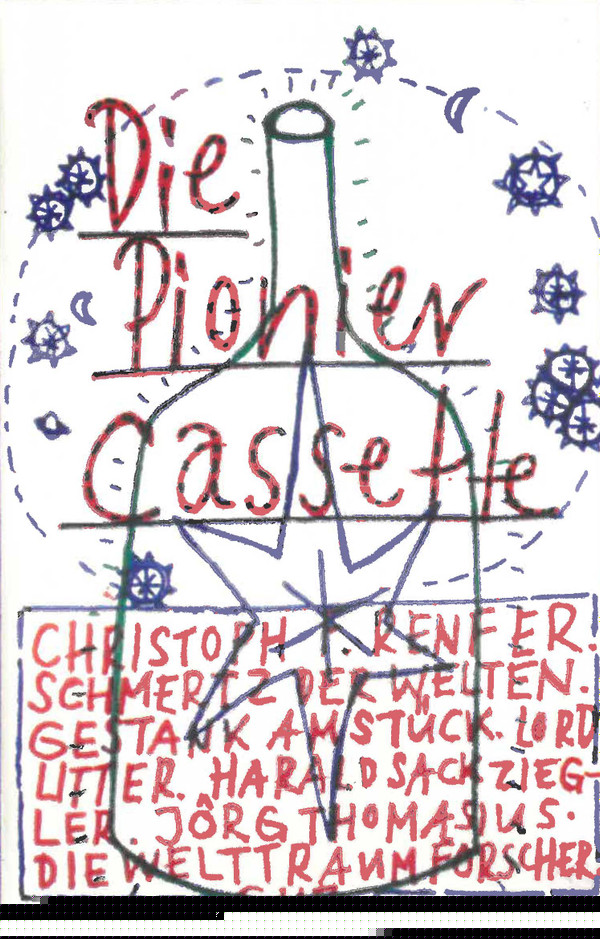 Die
Pionier
Cassette
CHRISTOPH F. RENFER.
SCHMERTZ DER WELTEN.
GESTANK AM STÜCK. LORD
LITTER. HARALD SACK ZIEG-
LER. JÔRG THOMASIUS.
DIE WELTTRAUMFORSCHER.